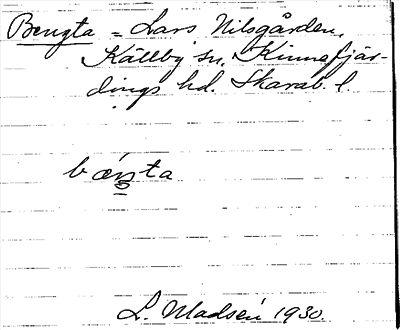 Bengta = Lars Nilsgården,
Källby sn, Kinnefjär-
dings hd. Skarab. l.
L. Madsén 1930.